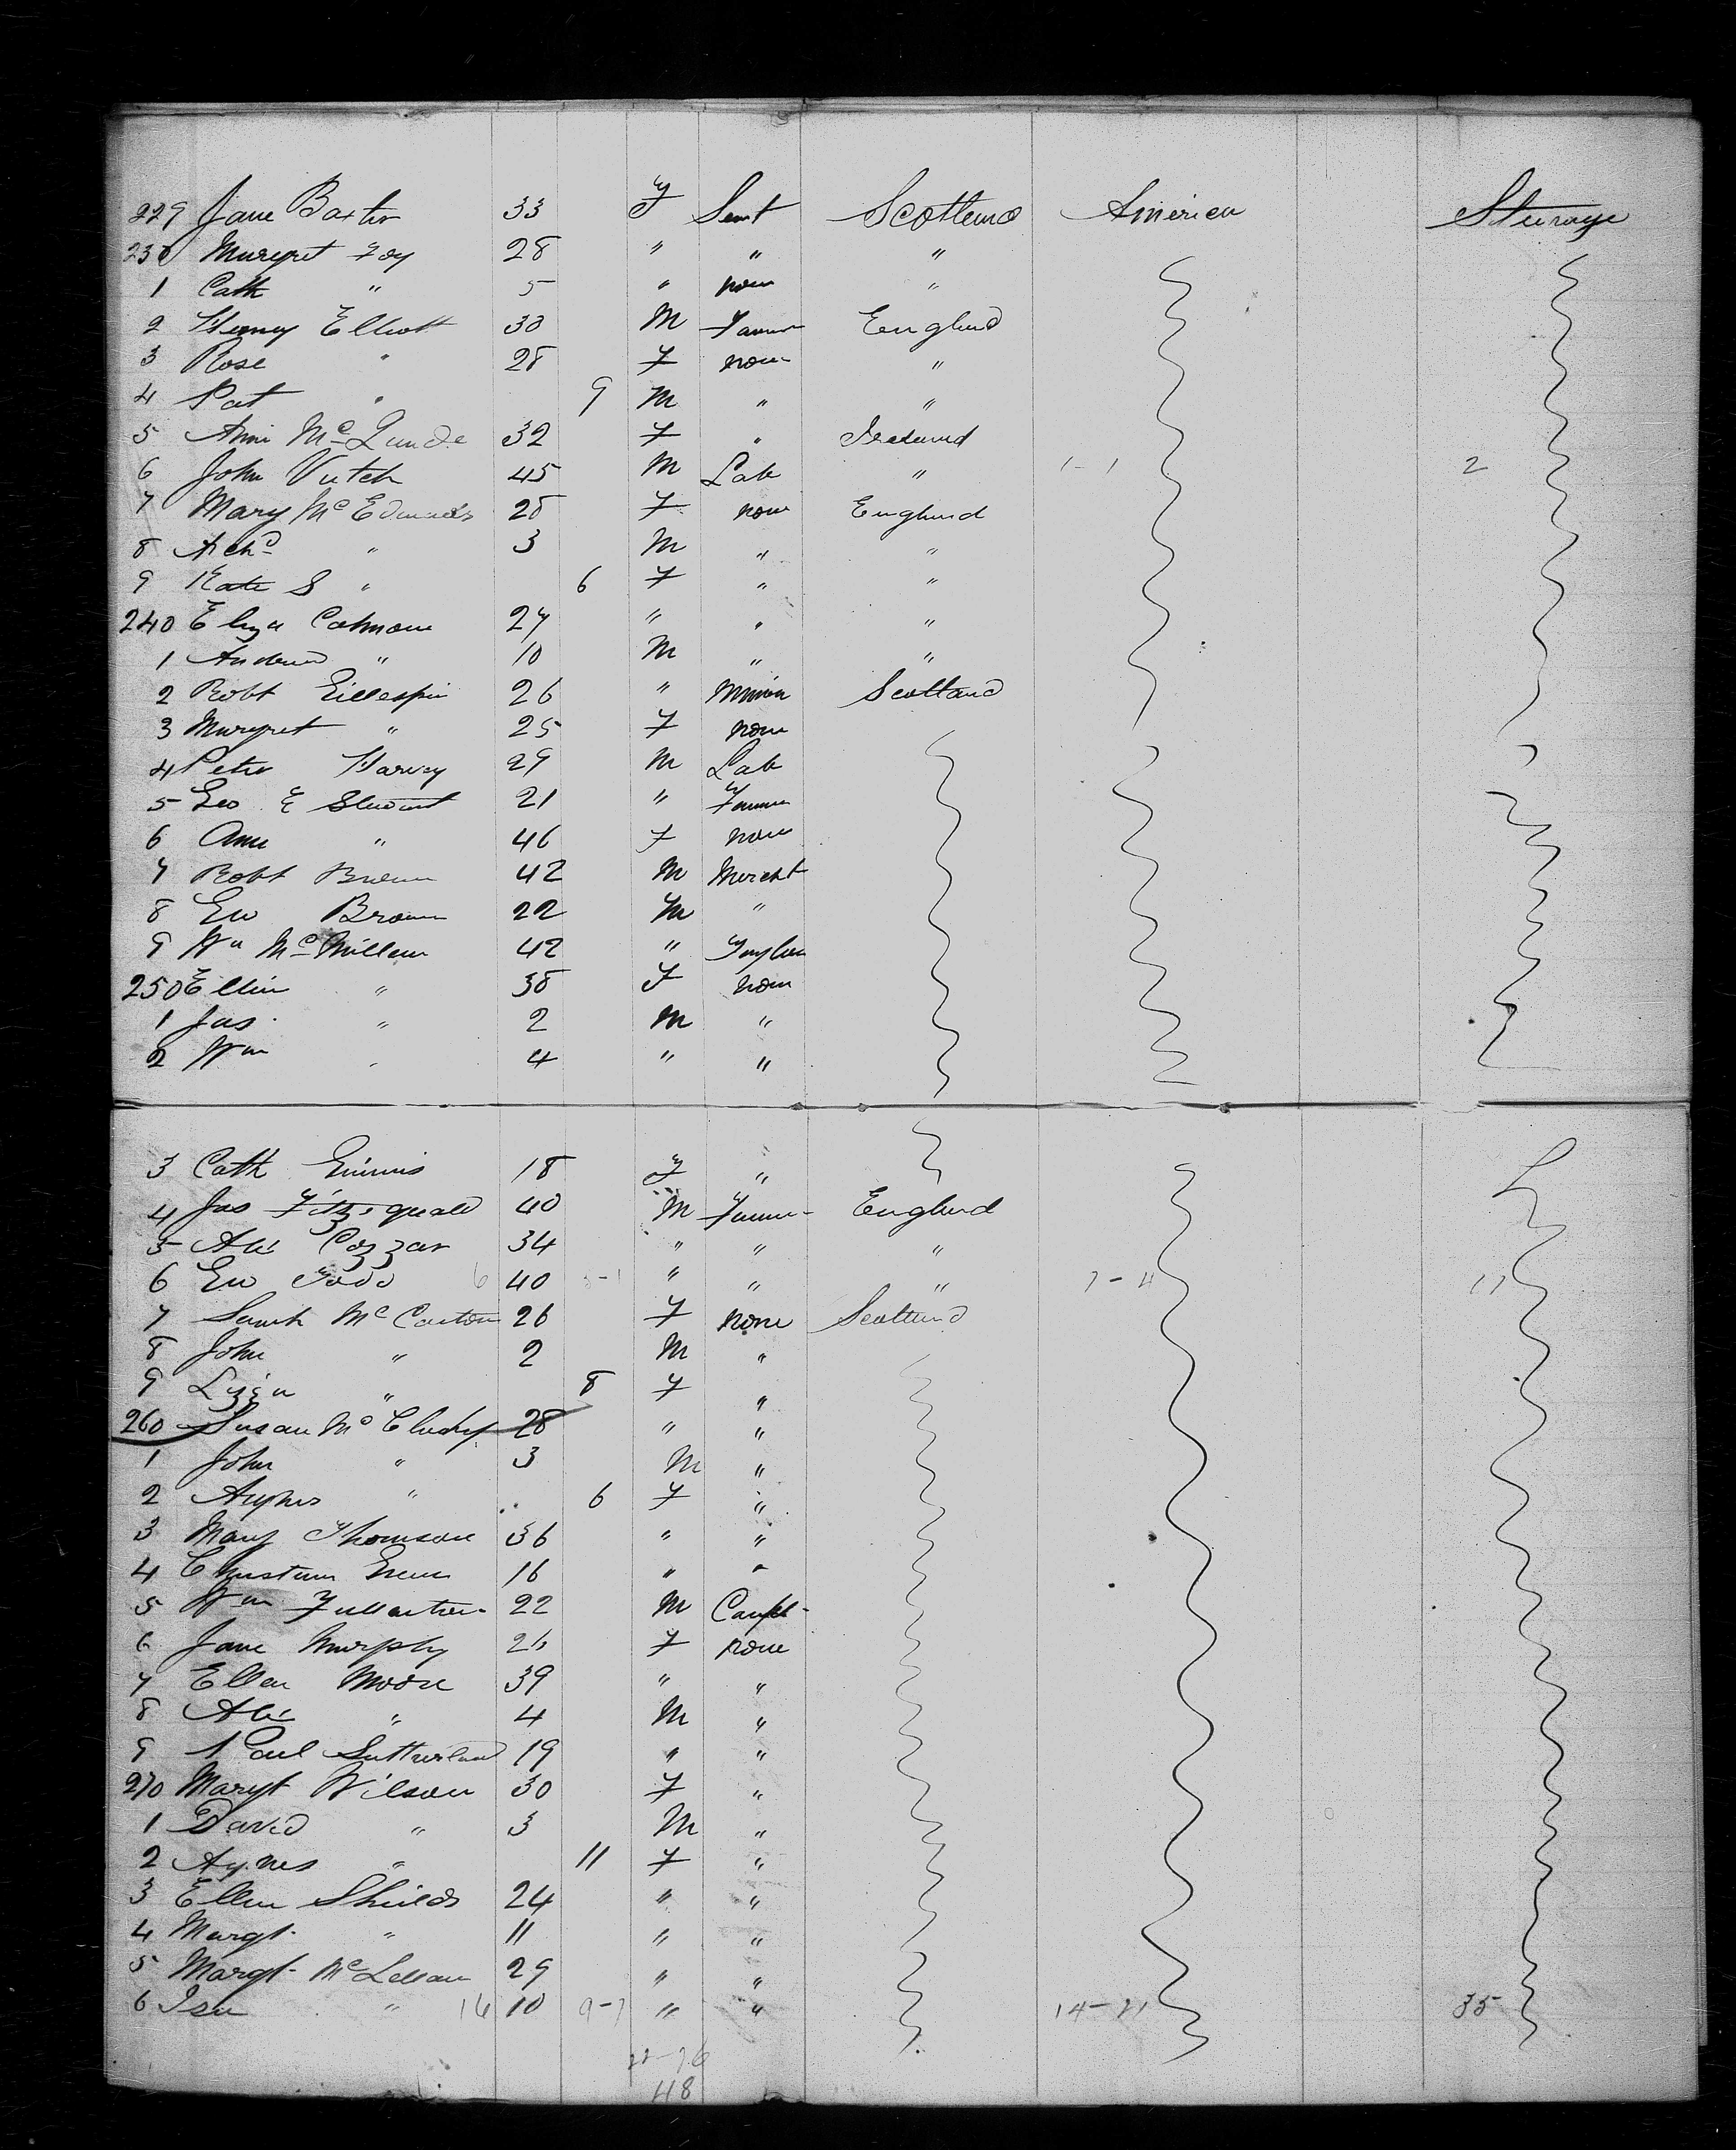 229 Jane Baxter 33 F Servt Scotland America Steerage
230 Margret Foy 28 " " "
1 Cath " 5 " none "
2 Henry Elliott 30 M Farmer England
3 Rose " 28 F none "
4 Pat " 9 M " "
5 Ann Mc 32 F " Ireland
6 John 45 M Lab " 1-1 2
7 Mary McEdwards 28 F none England
8 Archd " 3 M " "
9 Kate S " 6 F " "
240 Eliza 27 " " "
1 Andrew " 10 M " "
2 Robt Gillespie 26 " Scotland
3 Margret " 25 F none
4 Peter Harvey 29 M Lab
5 Geo E Stewart 21 " Farmer
6 Ann " 46 F none
7 Robt Brown 42 M Mercht
8 Geo Brown 22 M "
9 Wm McMillan 42 " Taylor
250 Ellin " 38 F none
1 Jas. " 2 M "
2 Wm " 4 " "
3 Cath 18 F "
4 Jas 40 M Farmer England
5 Alex 34 " " "
6 Geo Todd 6 40 " " " 7-4 11
7 Sarah Mc 26 F none Scotland
8 John " 2 M "
9 Lizza " 8 F "
260 Susan Mc 28 " "
1 John " 3 M "
2 Agnes " 6 F "
3 Mary Thomson 36 " "
4 16 " "
5 Wm Fullarton 22 M
6 Jane Murphy 26 F none
7 Ellen Moore 39 " "
8 Alex " 4 M "
9 Paul Sutherland 19 " "
270 Margt Wilson 30 F "
1 David " 3 M "
2 Agnes " 11 F "
3 Ellen Shields 24 " "
4 Margt. " 11 " "
5 Margt McLellan 29 " "
6 Isa " 16 10 9-7 " " 14-21 35
22-26
48